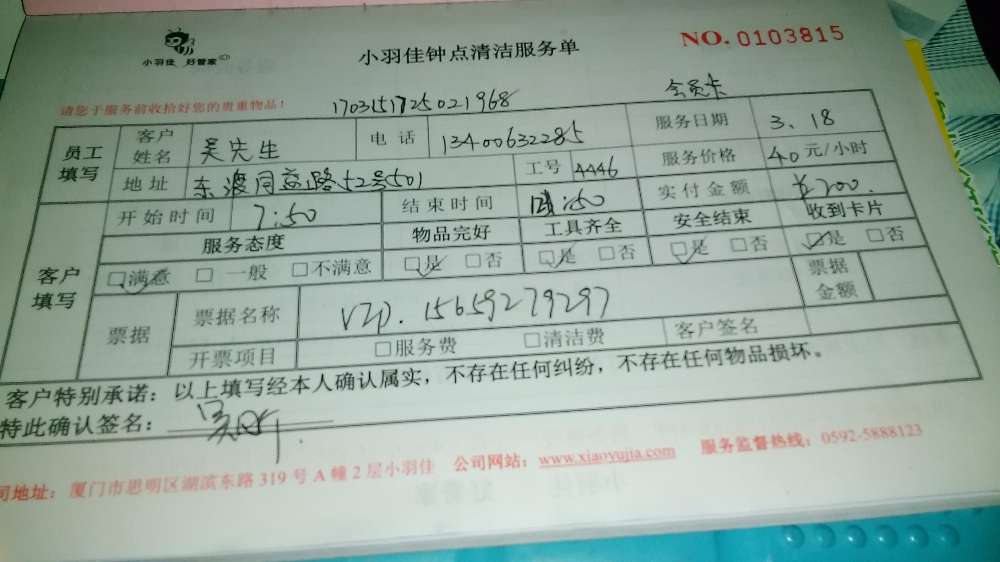 小羽佳 好管家
小羽佳钟点清洁服务单
NO. 0103815
请您于服务前收拾好您的贵重物品！
1703151725021968
会员卡
员工填写 客户姓名 吴先生 电话 13400632285 服务日期 3、18
地址 东渡同益路52号501 工号 4446 服务价格 40元/小时
客户填写 开始时间 7:50 结束时间 :50 实付金额 ¥200.
服务态度 物品完好 工具齐全 安全结束 收到卡片
□满意 □一般 □不满意 □是 □否 □是 □否 □是 □否 □是 □否
票据 票据名称 VIP. 15659279297 票据金额
开票项目 □服务费 □清洁费 客户签名
客户特别承诺：以上填写经本人确认属实，不存在任何纠纷，不存在任何物品损坏。
特此确认签名：吴
司地址：厦门市思明区湖滨东路319号A幢2层小羽佳 公司网站：www.xiaoyujia.com 服务监督热线：0592-5888123